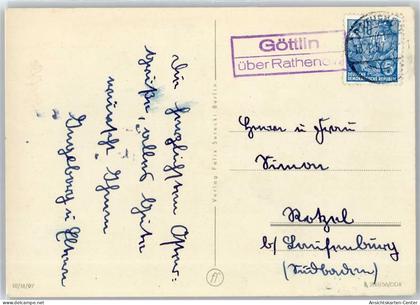 Die herzlichsten Oster-
grüße, alles Gute
wünscht Ihnen
Ingeborg u. Eltern
Verlag Felix Setecki Berlin
Göttlin
über Rathenow
DEUTSCHE
DEMOKRATISCHE REPUBLIK
5
Herrn und Frau
Simon
Rotzel
b/ Laufenburg
(Südbaden)